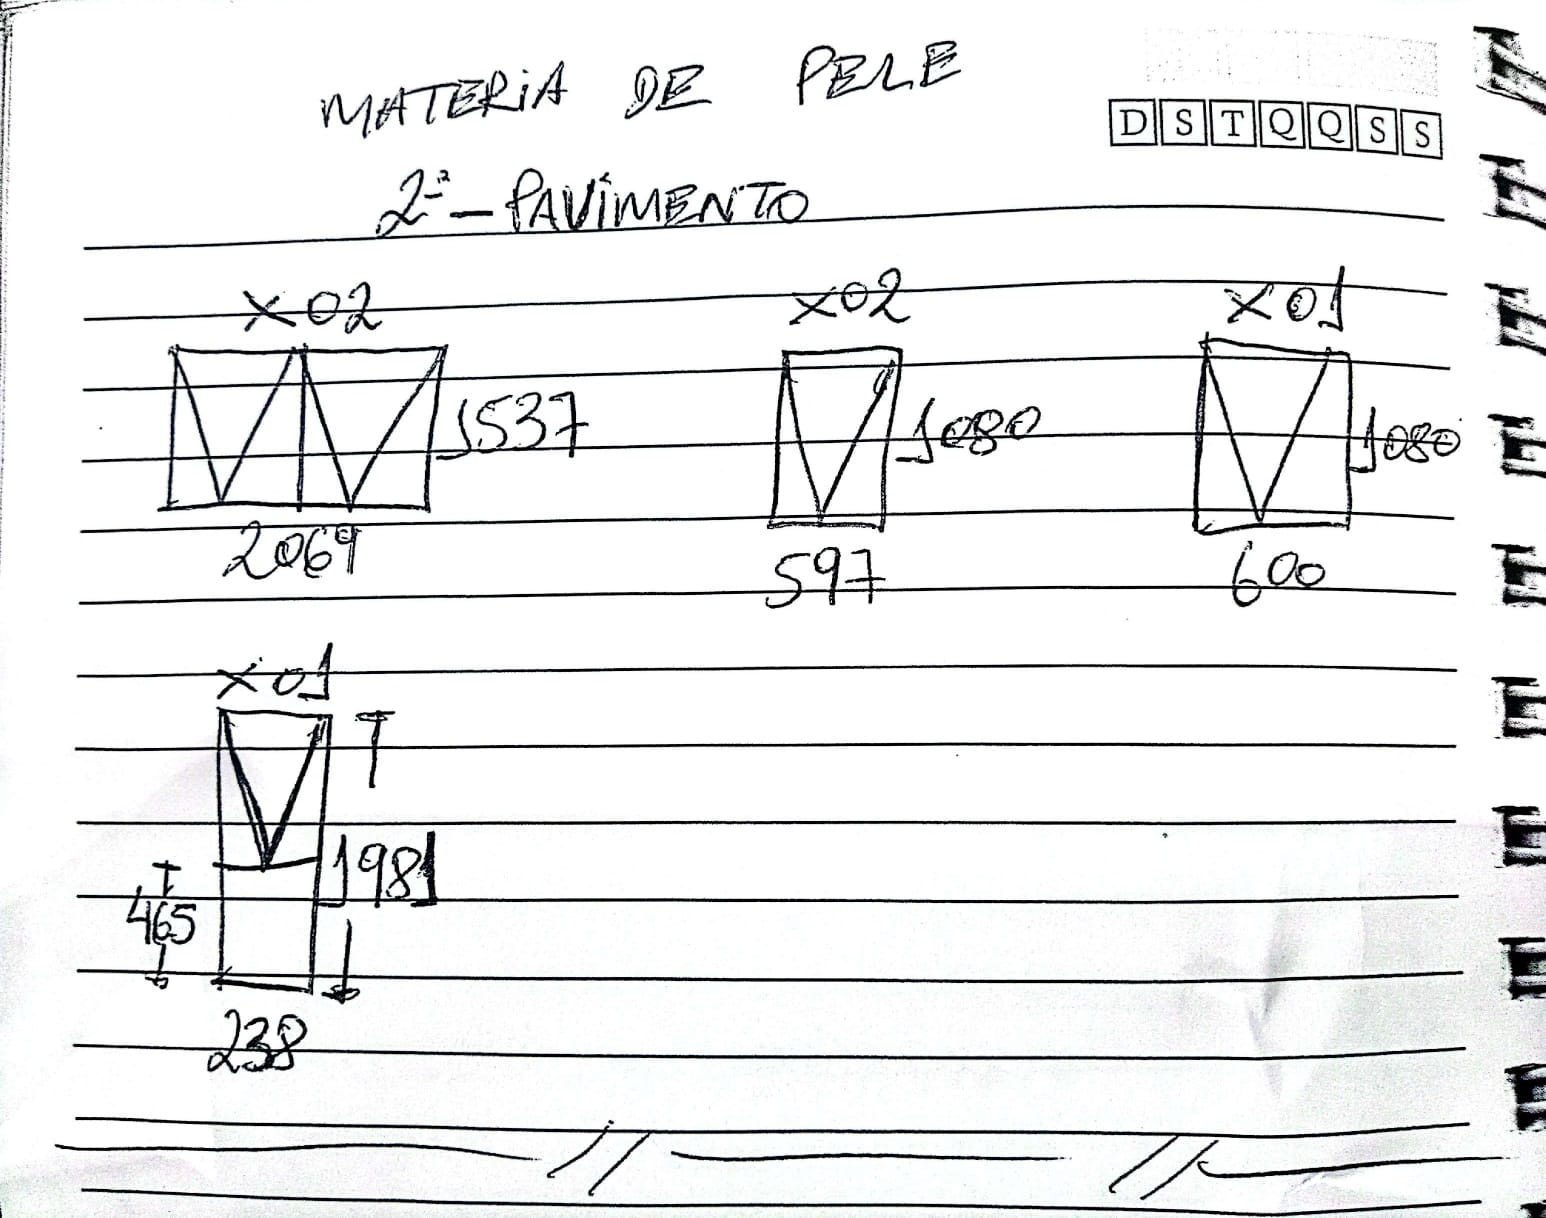 MATERiA DE PELE
D S T Q Q S S
2º - PAViMENTO
X02 X02 X01
1537 1080 1080
2069 597 600
X01
1981
465
238